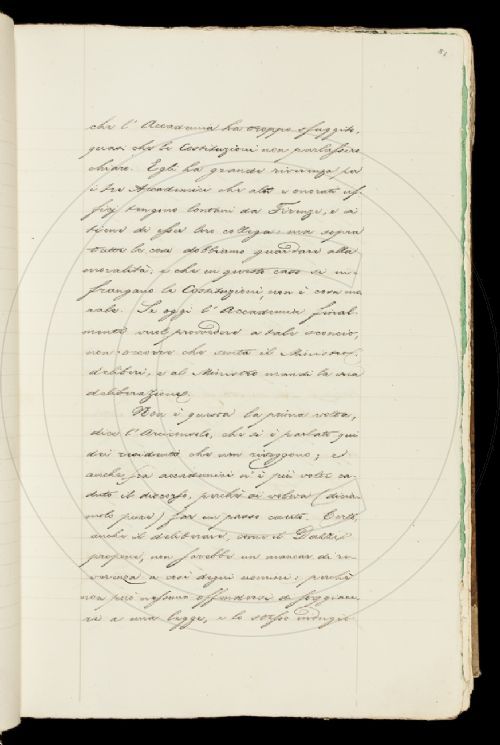 81
che l'Accademia ha troppo sfuggito,
quasi che le Costituzioni non parlassero
chiaro. Egli ha grande riverenza per
i tre Accademici che alti e onorati uf-
fizj tengono lontani da Firenze, e si
tiene di esser loro collega: ma sopra
tutte le cose dobbiamo guardare alla
moralità; e che in questo caso si in-
frangano le Costituzioni, non è cosa mo
rale. Se oggi l'Accademia final-
mente vuol provvedere a tale sconcio,
non occorre che senta il Ministro;
deliberi, e al Ministro mandi la sua
deliberazione.
Non è questa la prima volta,
dice l'Arciconsolo, che si è parlato qui
dei residenti che non riseggono; e
anche fra accademici n'è più volte ca-
duto il discorso, perchè si voleva (dicia-
molo pure) far un passo cauto. Certo,
anche il deliberare, come il Dazzi
propone, non sarebbe un mancar di re-
verenza a così degni uomini; perchè
non può nessuno offendersi di soggiace-
re a una legge, e lo stesso indugio